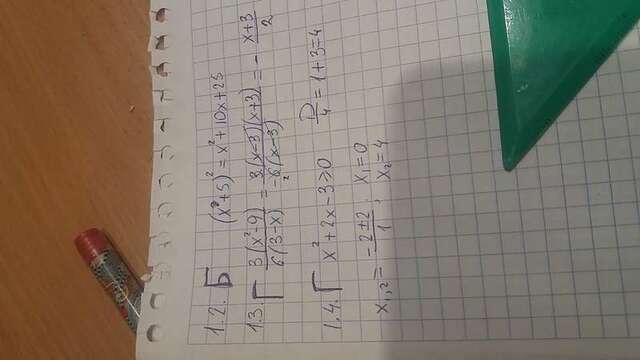 1.2. Б (x²+5)² = x²+10x+25
1.3. Г 3(x²-9)/6(3-x) = 3(x-3)(x+3)/-6(x-3) = - x+3/2
1.4. Г x²+2x-3≥0 D/4 = 1+3=4
x₁,₂ = -2±2/1 ; x₁=0
x₂=4